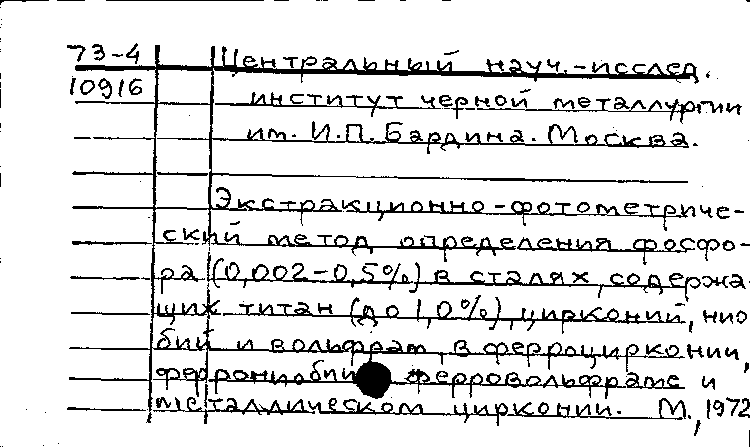 73-4 Центральный науч.-исслед.
10916 институт черной металлургии
им. И.П. Бардина. Москва.
Экстракционно-фотометриче-
ский метод определения фосфо-
ра (0,002-0,5%) в сталях, содержа-
щих титан (до 1,0%), цирконий, нио-
бий и вольфрам, в ферроцирконии,
феррониобии ферровольфраме и
металлическом цирконии. М., 1972